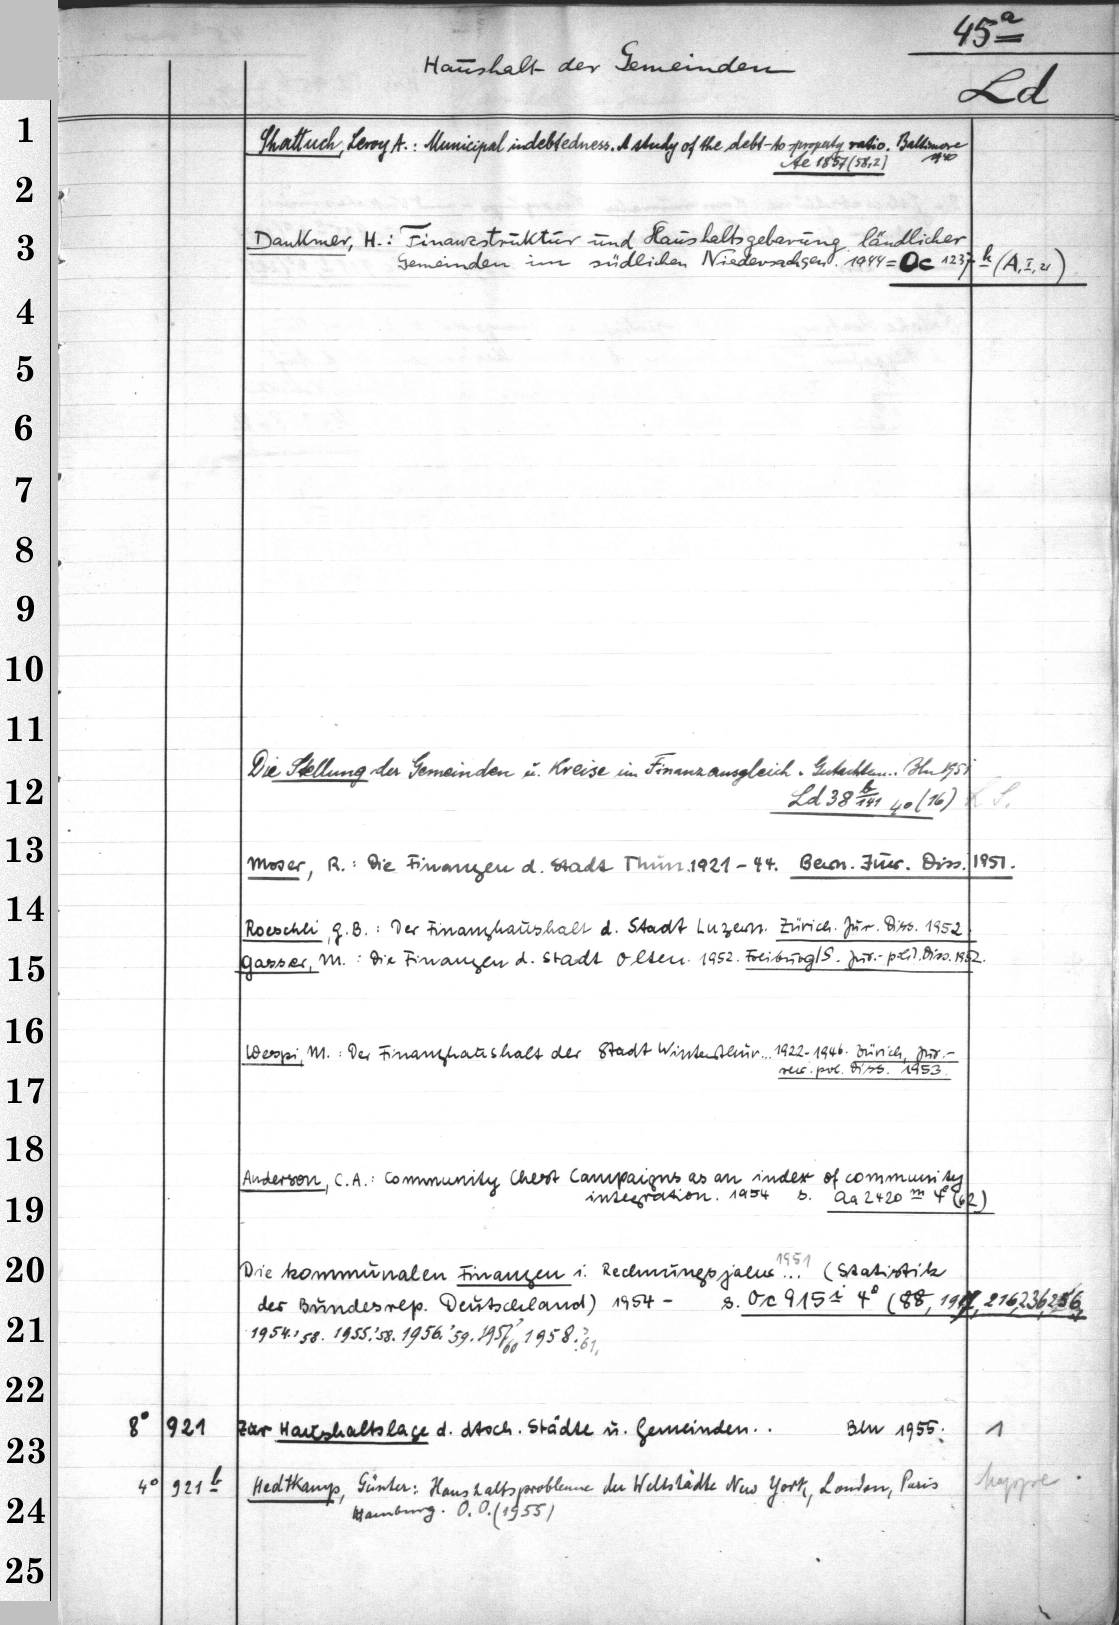 45a
Haushalt der Gemeinden
Ld
1
Shattuck, Leroy A.: Municipal indebtedness. A study of the debt-to-property ratio. Baltimore
1940
Ae 1857 (58,2)
2
3
Dankmer, H.: Finanzstruktur und Haushaltsgebarung ländlicher
Gemeinden im südlichen Niedersachsen. 1944 = Oc 1237 k (A, I, 21)
4
5
6
7
8
9
10
11
Die Stellung der Gemeinden u. Kreise im Finanzausgleich. Gutachten.. Bln 1951
12
Ld 38 b/141 4° (16)
13
Moser, R.: Die Finanzen d. Stadt Thun. 1921-44. Bern. Jur. Diss. 1951.
14
Roeschli, G.B.: Der Finanzhaushalt d. Stadt Luzern. Zürich. Jur. Diss. 1952
15
Gasser, M.: Die Finanzen d. Stadt Olten. 1952. Freiburg/S. Jur.-pol. Diss. 1952.
16
Werpi, M.: Der Finanzhaushalt der Stadt Winterthur... 1922-1946. Zürich, Jur.-
pol. Diss. 1953
17
18
Anderson, C.A.: Community Chest Campaigns as an index of community
19
integration. 1954 s. Aa 2420 m 4° (62)
20
Die kommunalen Finanzen i. Rechnungsjahr 1951 ... (Statistik
der Bundesrep. Deutschland) 1954 - s. Oc 915 i 4° (88, 216, 236, 256,
21
1954.'58. 1955.'58. 1956.'59. 1957.'60 1958.'61.
22
8° 921 Zur Haushaltslage d. dtsch. Städte u. Gemeinden.. Bln 1955. 1
23
4° 921 b Hedtkamp, Günter: Haushaltsprobleme der Weltstädte New York, London, Paris
24
Hamburg. O.O. (1955)
25